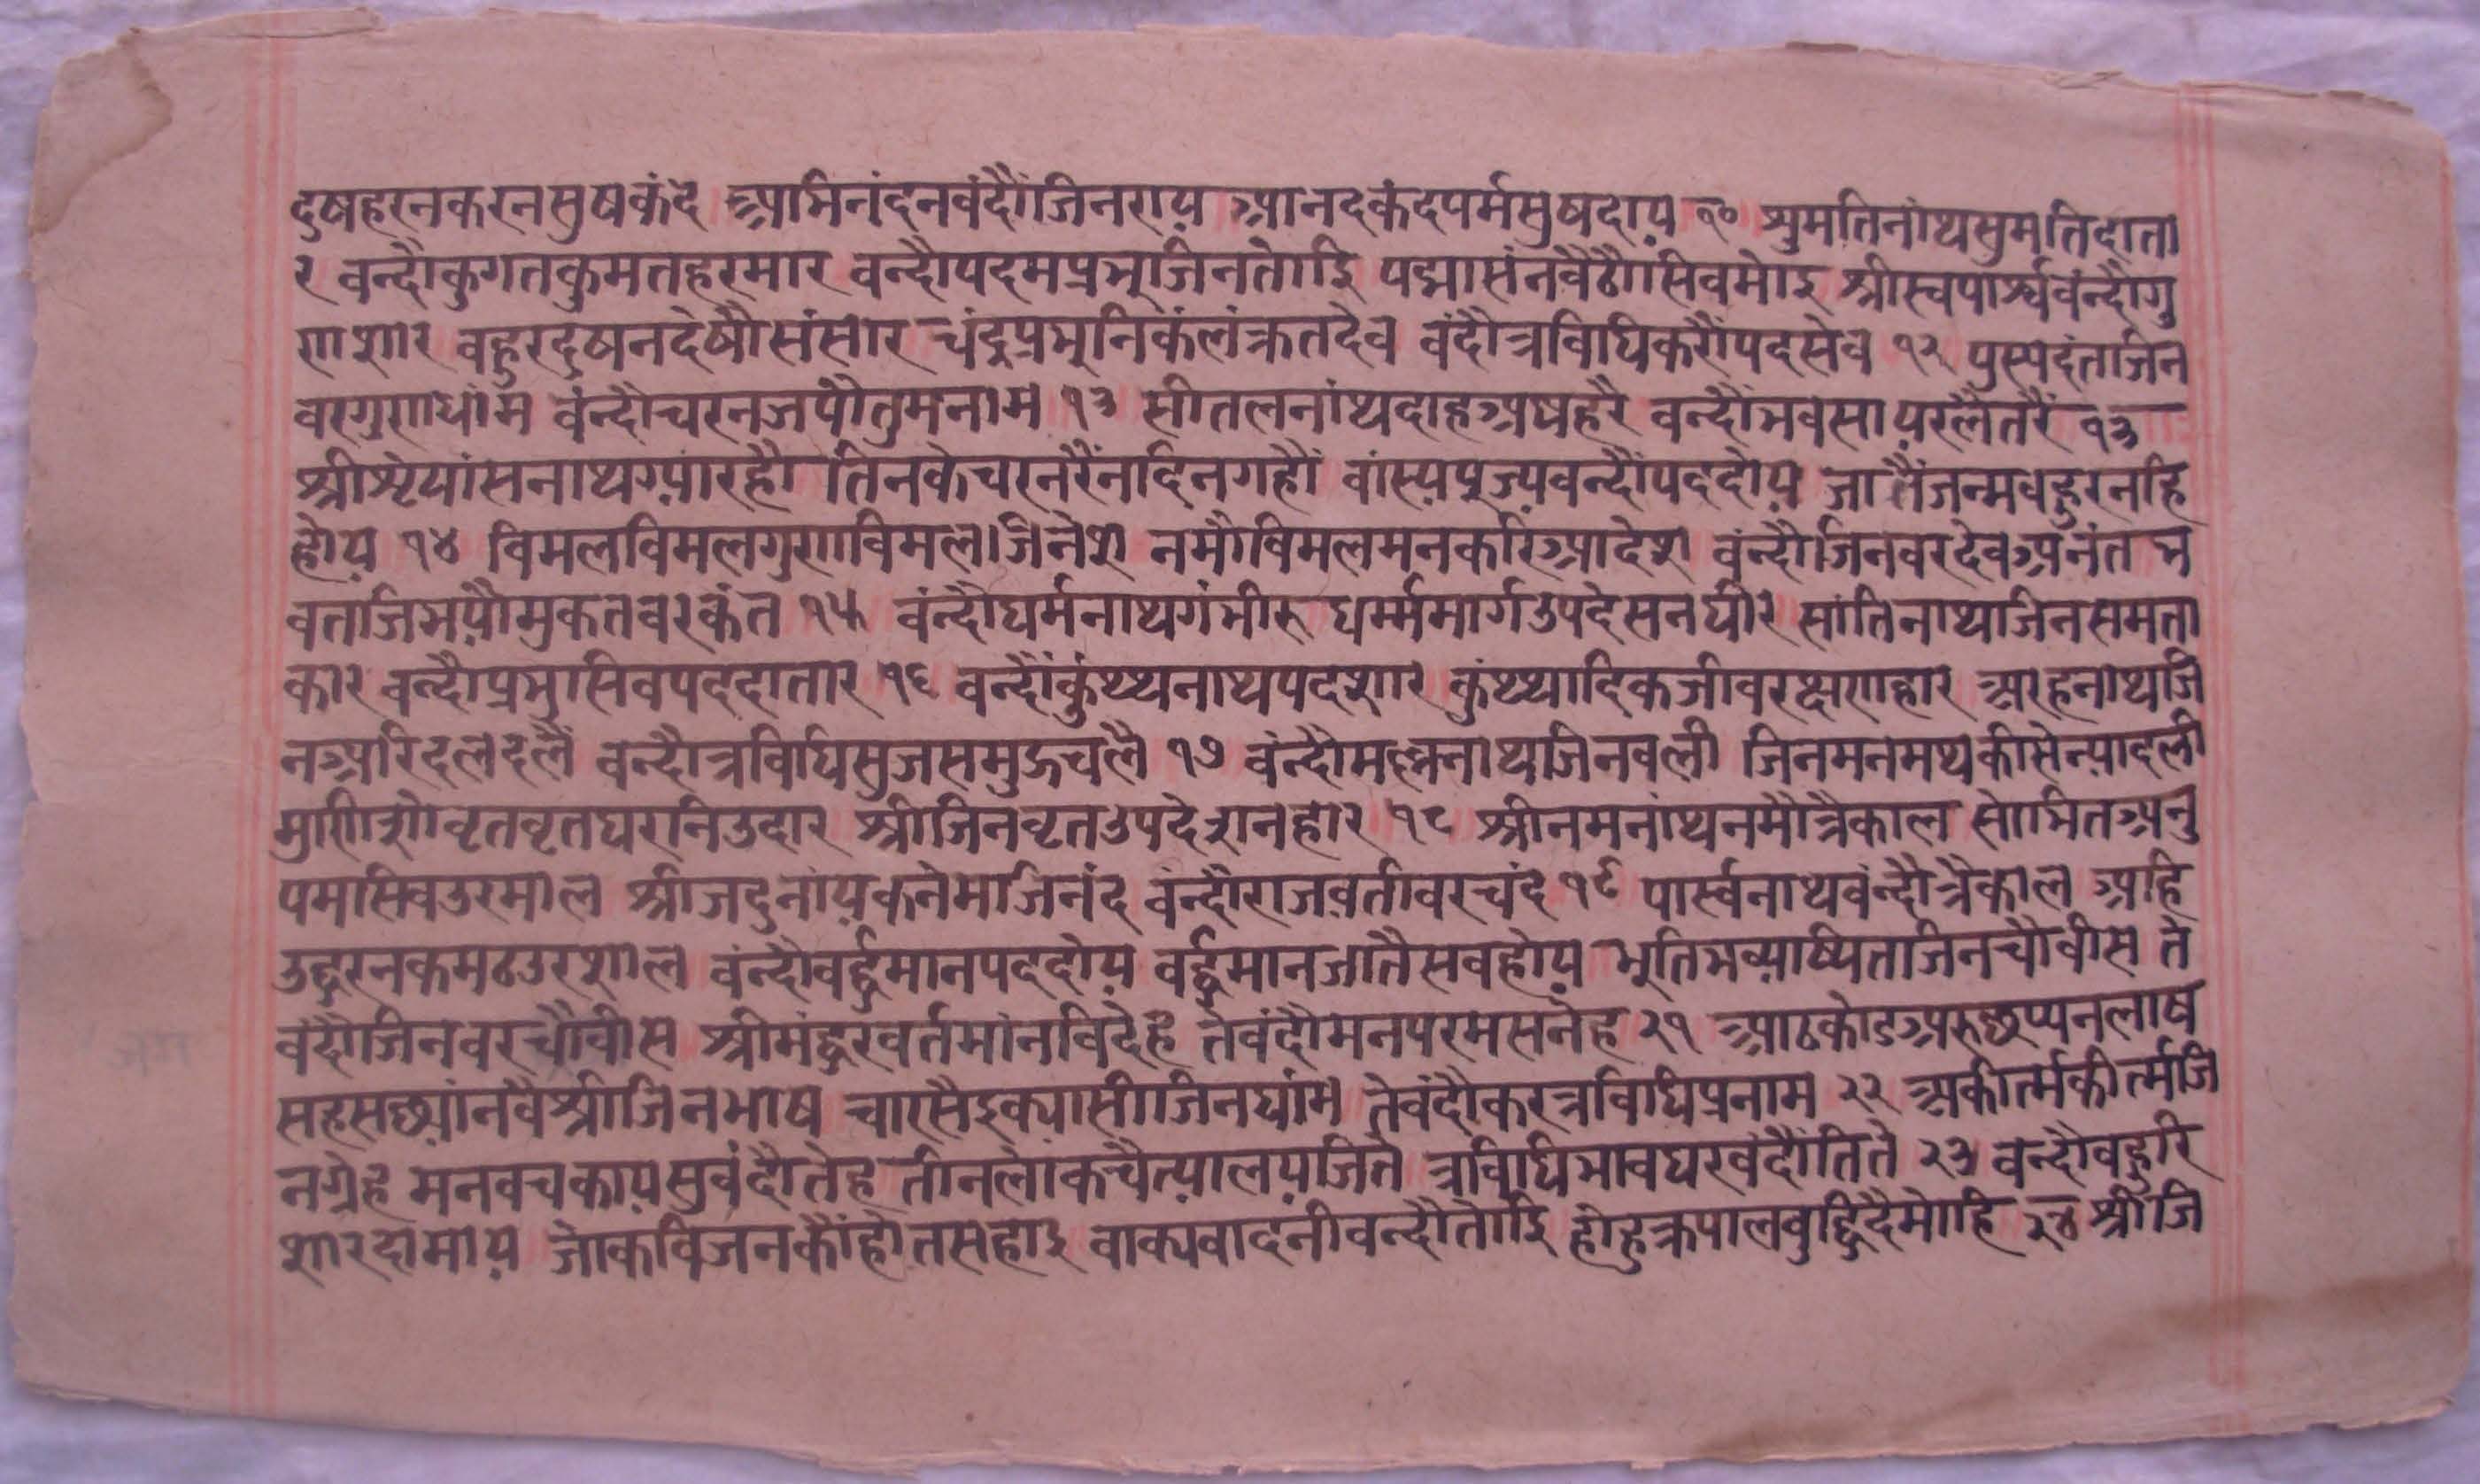 दुषहरनकरनसुषकंद आभिनंदनवंदौंजिनराय आनदकंदपर्मसुषदाय १० श्रुमतिनांथसुमतिदाता
र वन्दौकुगतकुमतहरमार वन्दौपदमप्रभुजिनतोइि पद्मासंनवैठौसिवमोइ श्रीस्वपार्श्चवंन्दौगु
णशार वहुरदुषनदेषौसंसार चंद्रप्रभुनिकंलंक्रतदेव वंदौत्रविधिकरौंपदसेव १२ पुस्पदंतजिन
वरगुणधांम वंन्दौचरनजपौतुमनाम १३ सीतलनांथदाहअघहरै वन्दौंभवसायरलैतरैं १३
श्रीश्रेयांसनाथग्पांरहौ तिनकेचरनरैंनदिनगहौं वांस्यपुज्यवन्दौंपददोय जातैंजन्मवहुरनहि
होय १४ विमलविमलगुणविमलजिनेश नमौंविमलमनकरिआदेश वंन्दौजिनवरदेवअनंत भ
वतजिभयौमुकतवरकंत १५ वंन्दौधर्मनाथगंभीरु धर्म्ममार्गउपदेसनधीर सांतिनाथजिनसमता
कार वन्दौप्रभुसिवपददातार १६ वन्दौंकुंथ्थनाथपदशार कुंथ्थादिकजीवरक्षणहार अरहनाथजि
नअरिदलदलैं वन्दौत्रविधिसुजसमुझचलै १७ वंन्दौमल्लनाथजिनवली जिनमनमथकीसेन्यादली
मुणिशोवृतवृतधरनिउदार श्रीजिनवृतउपदेशनहार १८ श्रीनमनांथनमौत्रैकाल सोभितअनु
पमसिवउरमाल श्रीजदुनांयकनेमजिनंद वंन्दौराजवतीवरचंद १९ पार्स्वनाथवंन्दौत्रैकाल अहि
उद्धरनकमठउरशाल वंन्दौवर्द्धमानपददोय वर्द्धमानजातैसवहोय भुतिभव्यषितजिनचौवीस ते
वंदौजिनवरचौवीस श्रीमंद्धरवर्तमांनविदेह तेवंदौमनपरमसनेह २१ आठकोडअरुछप्पनलाष
सहसछ्यांनवैश्रीजिनभाष चारसैइक्यासीजिनधांम तेवंदौकरत्रविधिप्रनाम २२ अकीर्त्मकीर्त्मजि
नग्रेह मनवचकायसुवंदौतेह तीनलोकचैत्यालयजिते त्रविधिभावधरवंदौंतिते २३ वन्दौवहुरि
शारदामाय जोकविजनकौंहोतसहाइ वाक्यवादनीवन्दौतोइि होहुक्रपालवुद्धिदैमोहि २४ श्रीजि